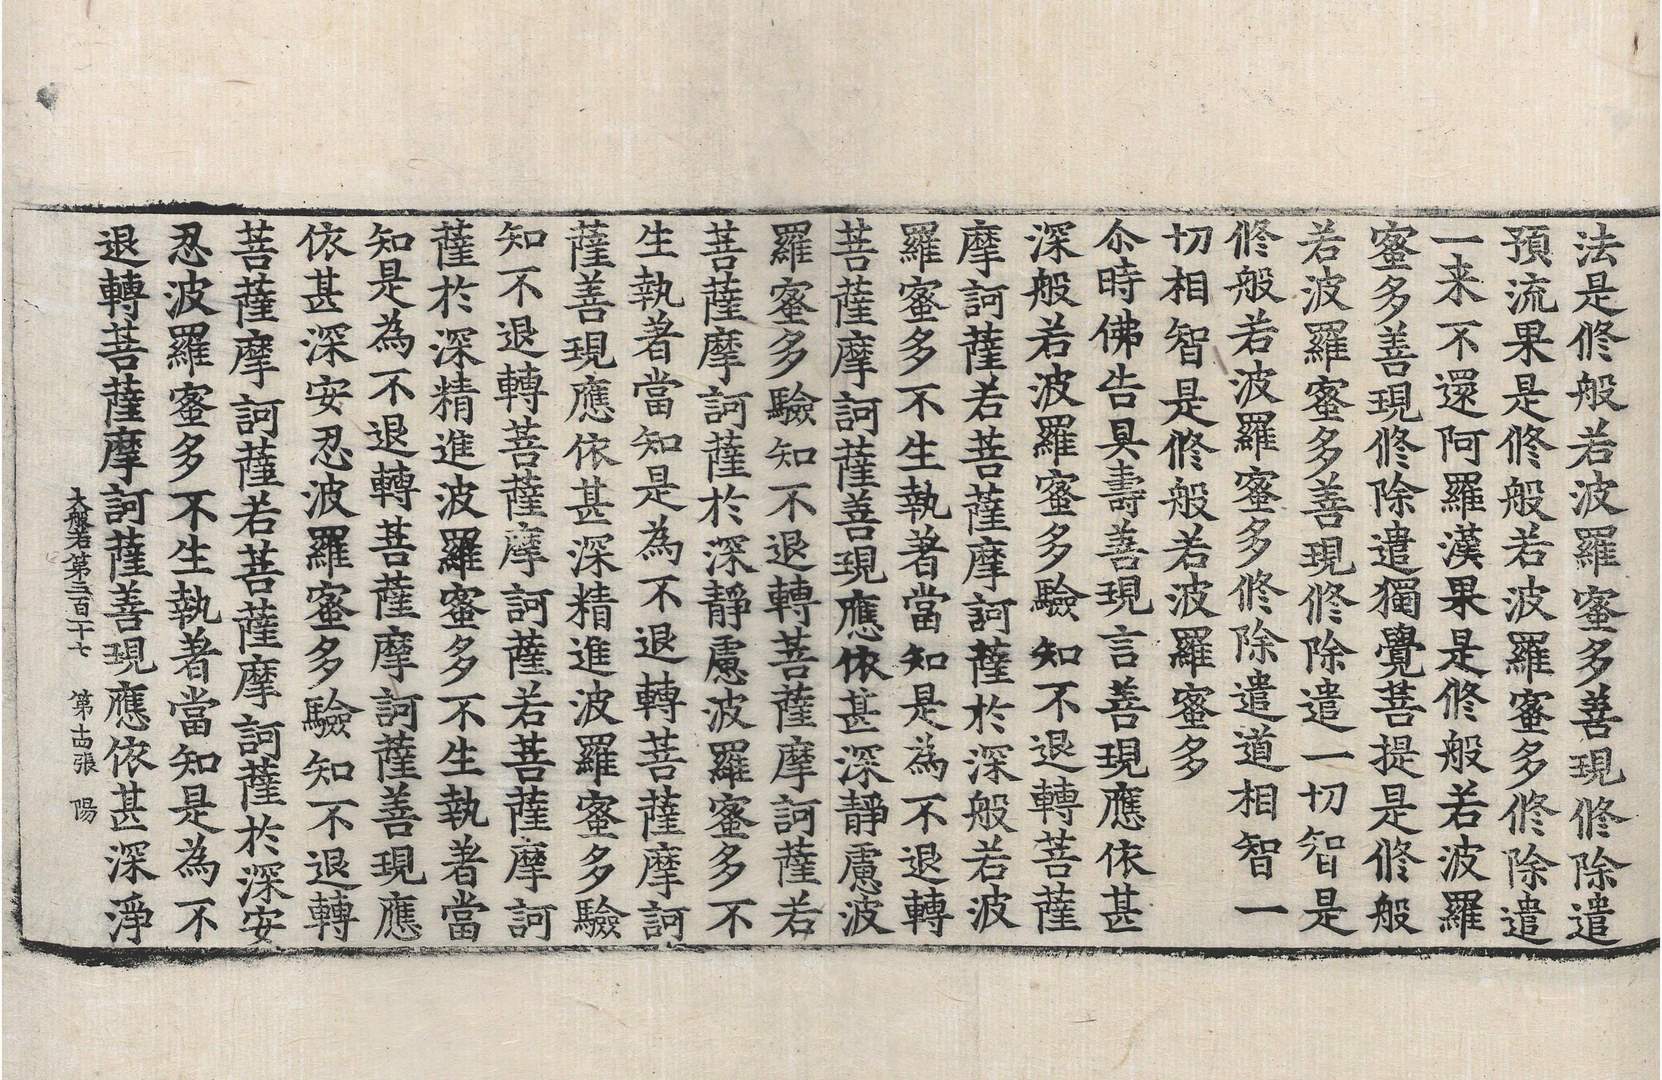 法是修般若波羅蜜多善現修除遣
預流果是修般若波羅蜜多修除遣
一来不還阿羅漢果是修般若波羅
蜜多善現修除遣獨覺菩提是修般
若波羅蜜多善現修除遣一切智是
修般若波羅蜜多修除遣道相智一
切相智是修般若波羅蜜多
尒時佛告具壽善現言善現應依甚
深般若波羅蜜多驗知不退轉菩薩
摩訶薩若菩薩摩訶薩於深般若波
羅蜜多不生執著當知是為不退轉
菩薩摩訶薩善現應依甚深靜慮波
羅蜜多驗知不退轉菩薩摩訶薩若
菩薩摩訶薩於深靜慮波羅蜜多不
生執著當知是為不退轉菩薩摩訶
薩善現應依甚深精進波羅蜜多驗
知不退轉菩薩摩訶薩若菩薩摩訶
薩於深精進波羅蜜多不生執著當
知是為不退轉菩薩摩訶薩善現應
依甚深安忍波羅蜜多驗知不退轉
菩薩摩訶薩若菩薩摩訶薩於深安
忍波羅蜜多不生執著當知是為不
退轉菩薩摩訶薩善現應依甚深淨
大般若第三百十七 第 張 陽